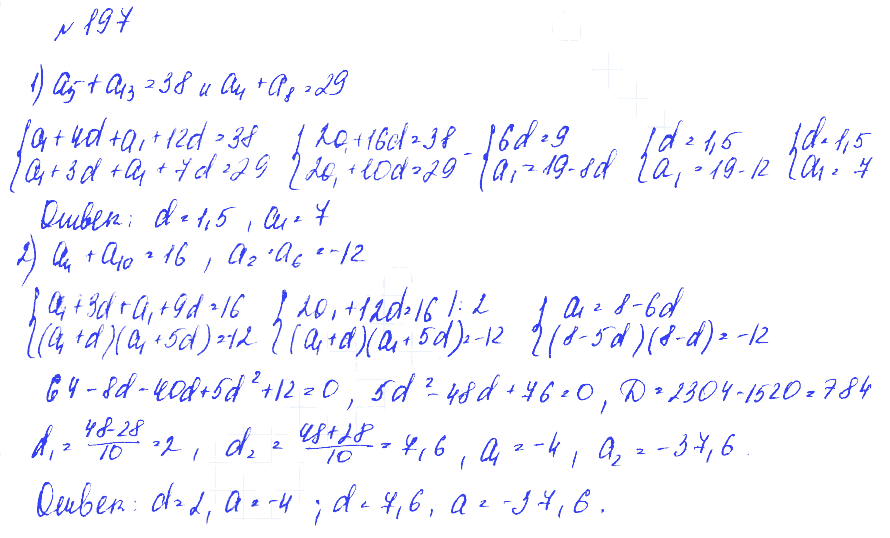 № 197
1) a₅ + a₁₃ = 38 и a₄ + a₈ = 29
{ a₁ + 4d + a₁ + 12d = 38 { 2a₁ + 16d = 38 - { 6d = 9 { d = 1,5 { d = 1,5
{ a₁ + 3d + a₁ + 7d = 29 { 2a₁ + 10d = 29 { a₁ = 19 - 8d { a₁ = 19 - 12 { a₁ = 7
Ответ: d = 1,5 , a₁ = 7
2) a₄ + a₁₀ = 16 , a₂ · a₆ = -12
{ a₁ + 3d + a₁ + 9d = 16 { 2a₁ + 12d = 16 | : 2 { a₁ = 8 - 6d
{ (a₁ + d)(a₁ + 5d) = -12 { (a₁ + d)(a₁ + 5d) = -12 { (8 - 5d)(8 - d) = -12
64 - 8d - 40d + 5d² + 12 = 0 , 5d² - 48d + 76 = 0 , D = 2304 - 1520 = 784
d₁ = (48-28)/10 = 2 , d₂ = (48+28)/10 = 7,6 , a₁ = -4 , a₂ = -37,6 .
Ответ: d = 2, a = -4 ; d = 7,6 , a = -37,6 .